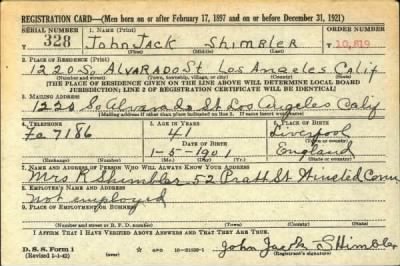 REGISTRATION CARD—(Men born on or after February 17, 1897 and on or before December 31, 1921)
SERIAL NUMBER
1. NAME (Print)
ORDER NUMBER
328
John Jack Shimbler
10,819
(First) (Middle) (Last)
2. PLACE OF RESIDENCE (Print)
1220 So Alvarado St Los Angeles Calif
(Number and street) (Town, township, village, or city) (County) (State)
[THE PLACE OF RESIDENCE GIVEN ON THE LINE ABOVE WILL DETERMINE LOCAL BOARD
JURISDICTION; LINE 2 OF REGISTRATION CERTIFICATE WILL BE IDENTICAL]
3. MAILING ADDRESS
1220 So Alvarado St Los Angeles Calif
[Mailing address if other than place indicated on line 2. If same insert word same]
4. TELEPHONE
5. AGE IN YEARS
6. PLACE OF BIRTH
Fa 7186
41
Liverpool
DATE OF BIRTH
(Town or county)
1-5-1901
England
(Exchange) (Number)
(Mo.) (Day) (Yr.)
(State or country)
7. NAME AND ADDRESS OF PERSON WHO WILL ALWAYS KNOW YOUR ADDRESS
Mrs R Shimbler 52 Pratt St Winsted Conn
8. EMPLOYER'S NAME AND ADDRESS
Not employed
9. PLACE OF EMPLOYMENT OR BUSINESS
(Number and street or R. F. D. number) (Town) (County) (State)
I AFFIRM THAT I HAVE VERIFIED ABOVE ANSWERS AND THAT THEY ARE TRUE.
D. S. S. Form 1
(Revised 1-1-42)
GPO
John Jack SHimbler
(Registrant's signature)